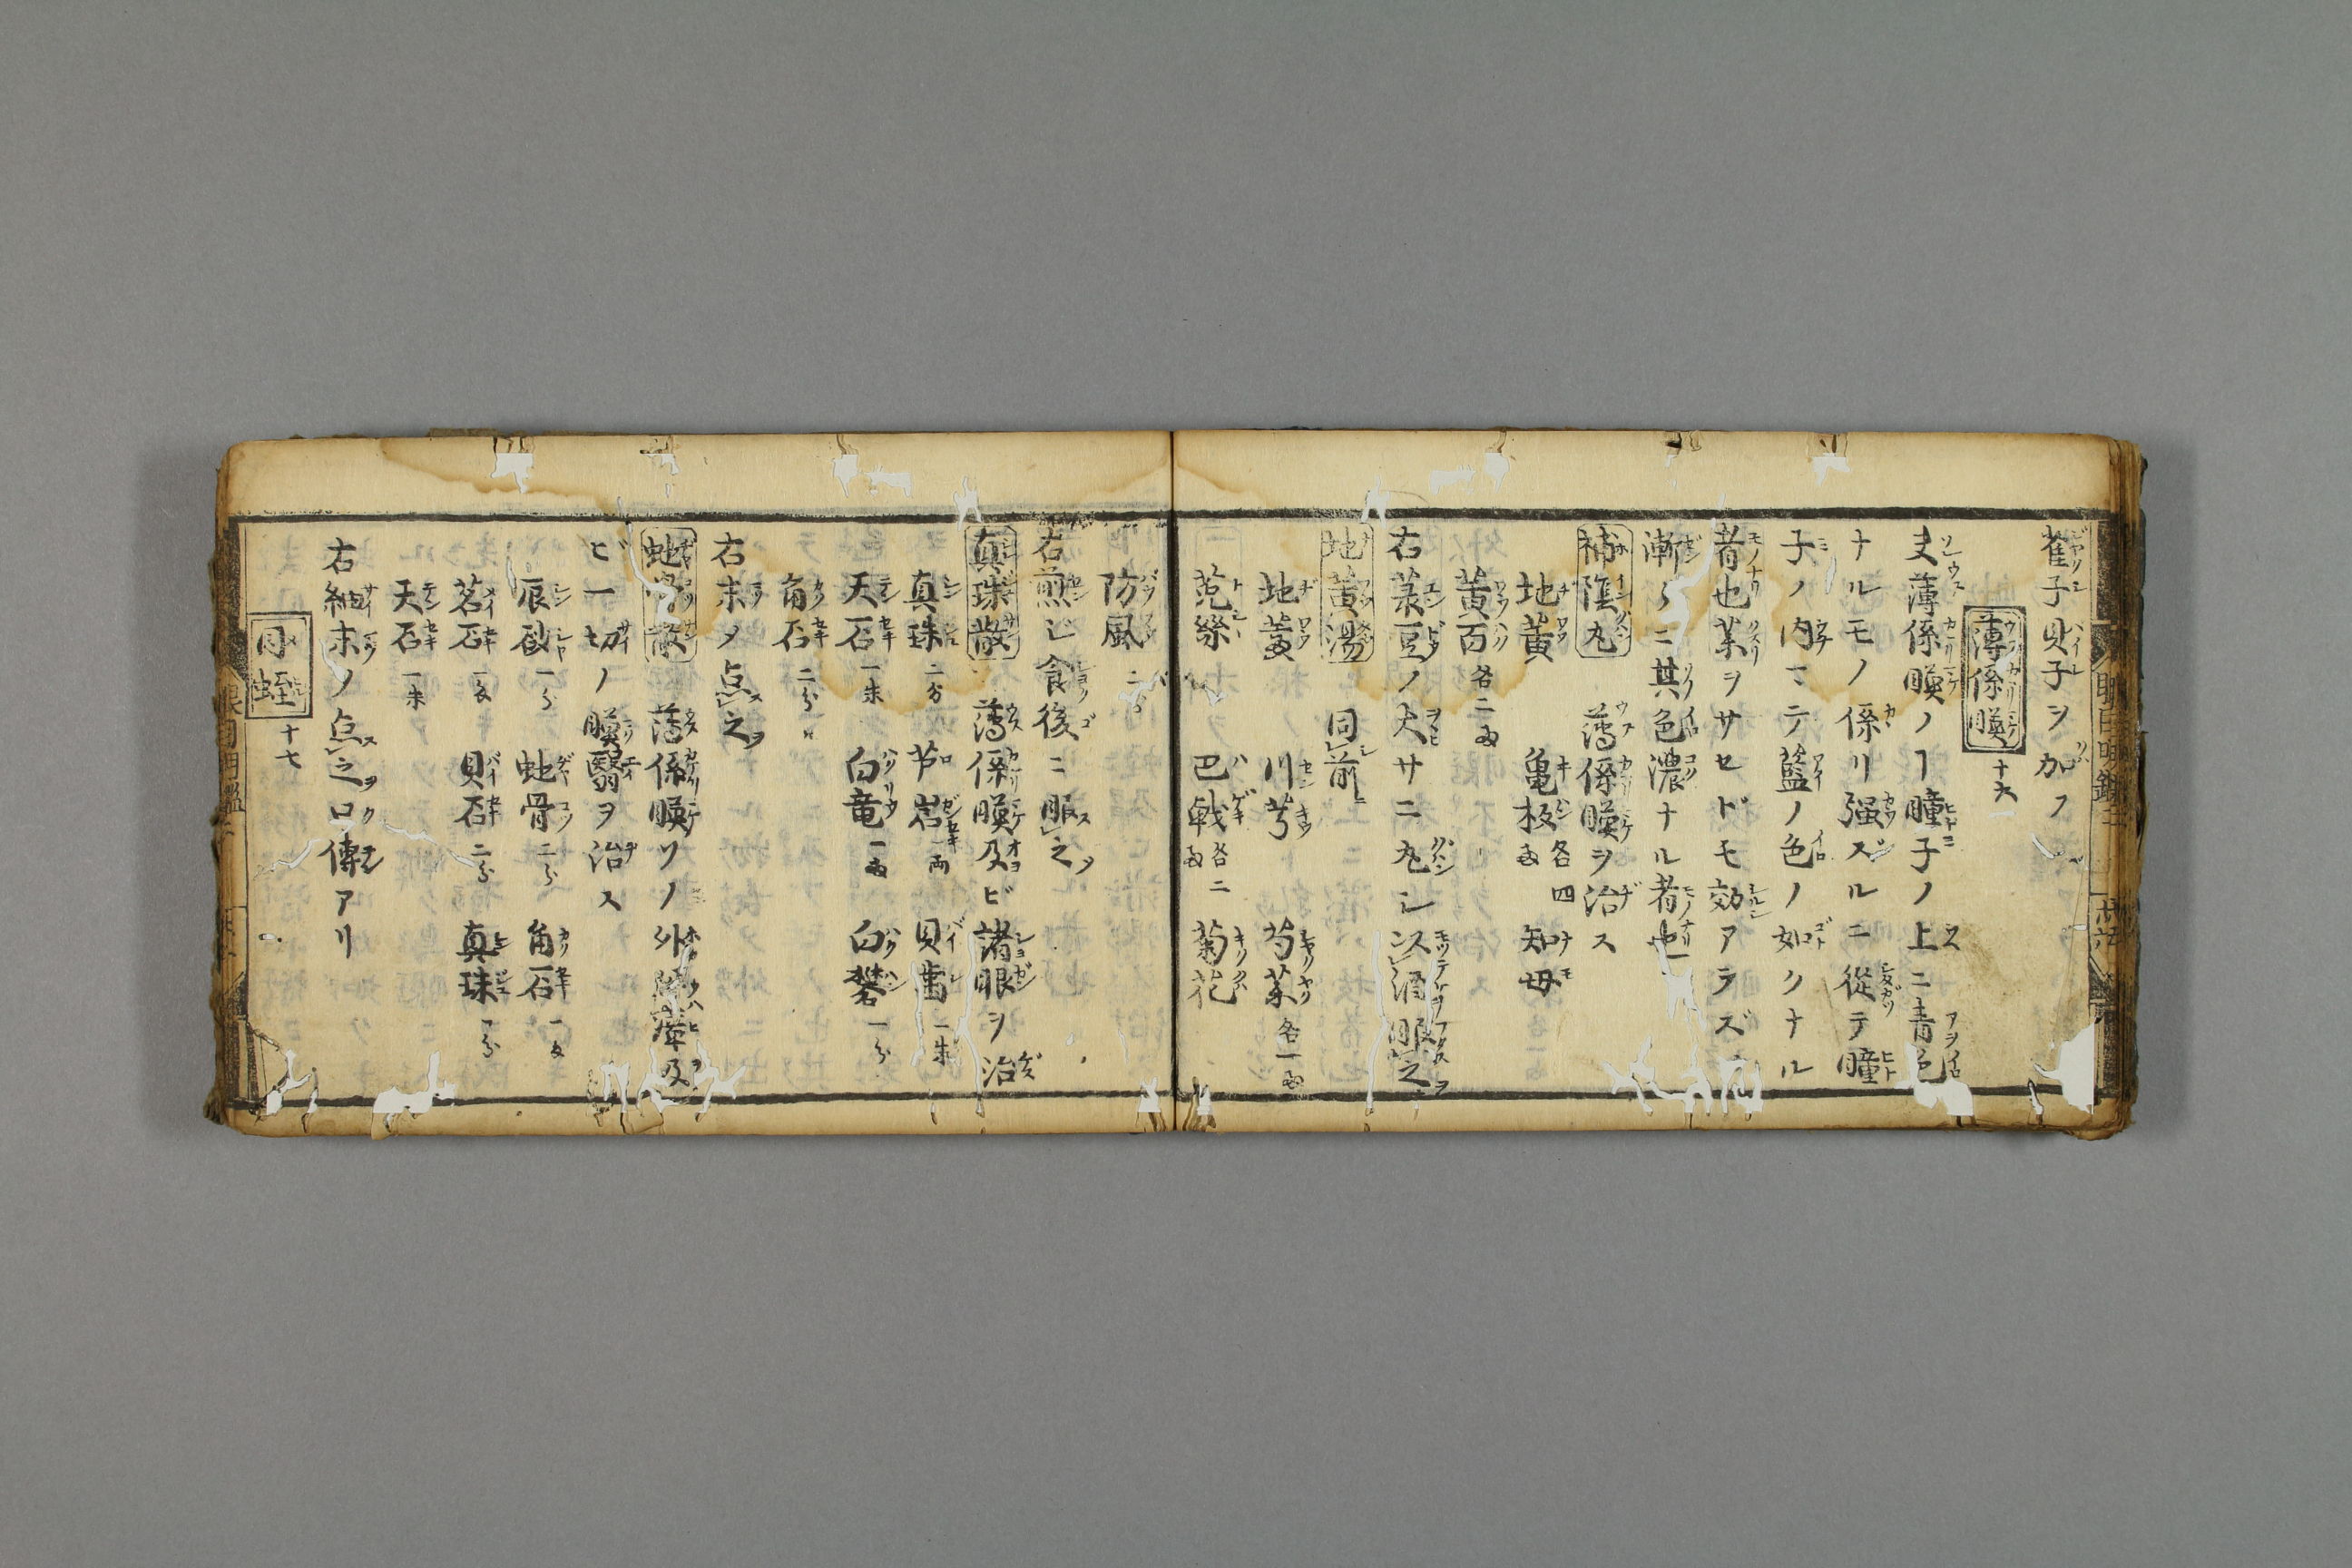 雀子貝子ヲ加フ
薄係膜 十六
夫薄係膜ノヿ瞳子ノ上ニ青色
ナルモノ係リ强ズルニ從テ瞳
子ノ内マテ藍ノ色ノ如クナル
者也薬ヲサセドモ効アラズ
漸々ニ其色濃ナル者也
補陰丸 薄係膜ヲ治ス
地黄 亀板 各四両 知母
黄百 各二両
右菉豆ノ大サニ丸シ以酒服之
地黄湯 同前
地黄 川芎 芍薬 各一両
菟絲 巴戟 各二両 菊花
防風 二分
右煎じ食後ニ服之
真珠散 薄係膜及ビ諸眼ヲ治
真珠 二分 芦岩 一両 貝歯 一朱
天石 一朱 白竜 一両 白礬 一分
角石 二分
右末メ点之
虵骨散 薄係膜ソノ外障瘴及
ビ一切ノ膜翳ヲ治ス
辰砂 一分 虵骨 二分 角石
茗石 貝石 二分 真珠 一分
天石 一朱
右細末ノ点之口傳アリ
月蛭 十七